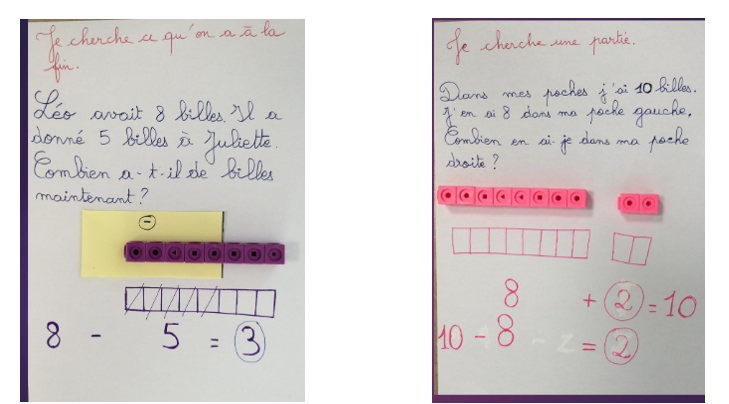 Je cherche ce qu'on a à la
fin.
Léo avait 8 billes. Il a
donné 5 billes à Juliette.
Combien a-t-il de billes
maintenant ?
-
8 - 5 = 3
Je cherche une partie.
Dans mes poches j'ai 10 billes.
J'en ai 8 dans ma poche gauche.
Combien en ai-je dans ma poche
droite ?
8 + 2 = 10
10 - 8 = 2